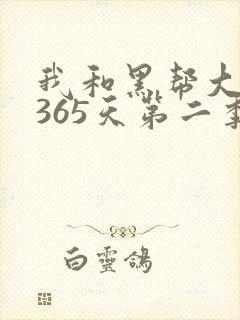 我和黑帮大
365天第二季
白靈鴿